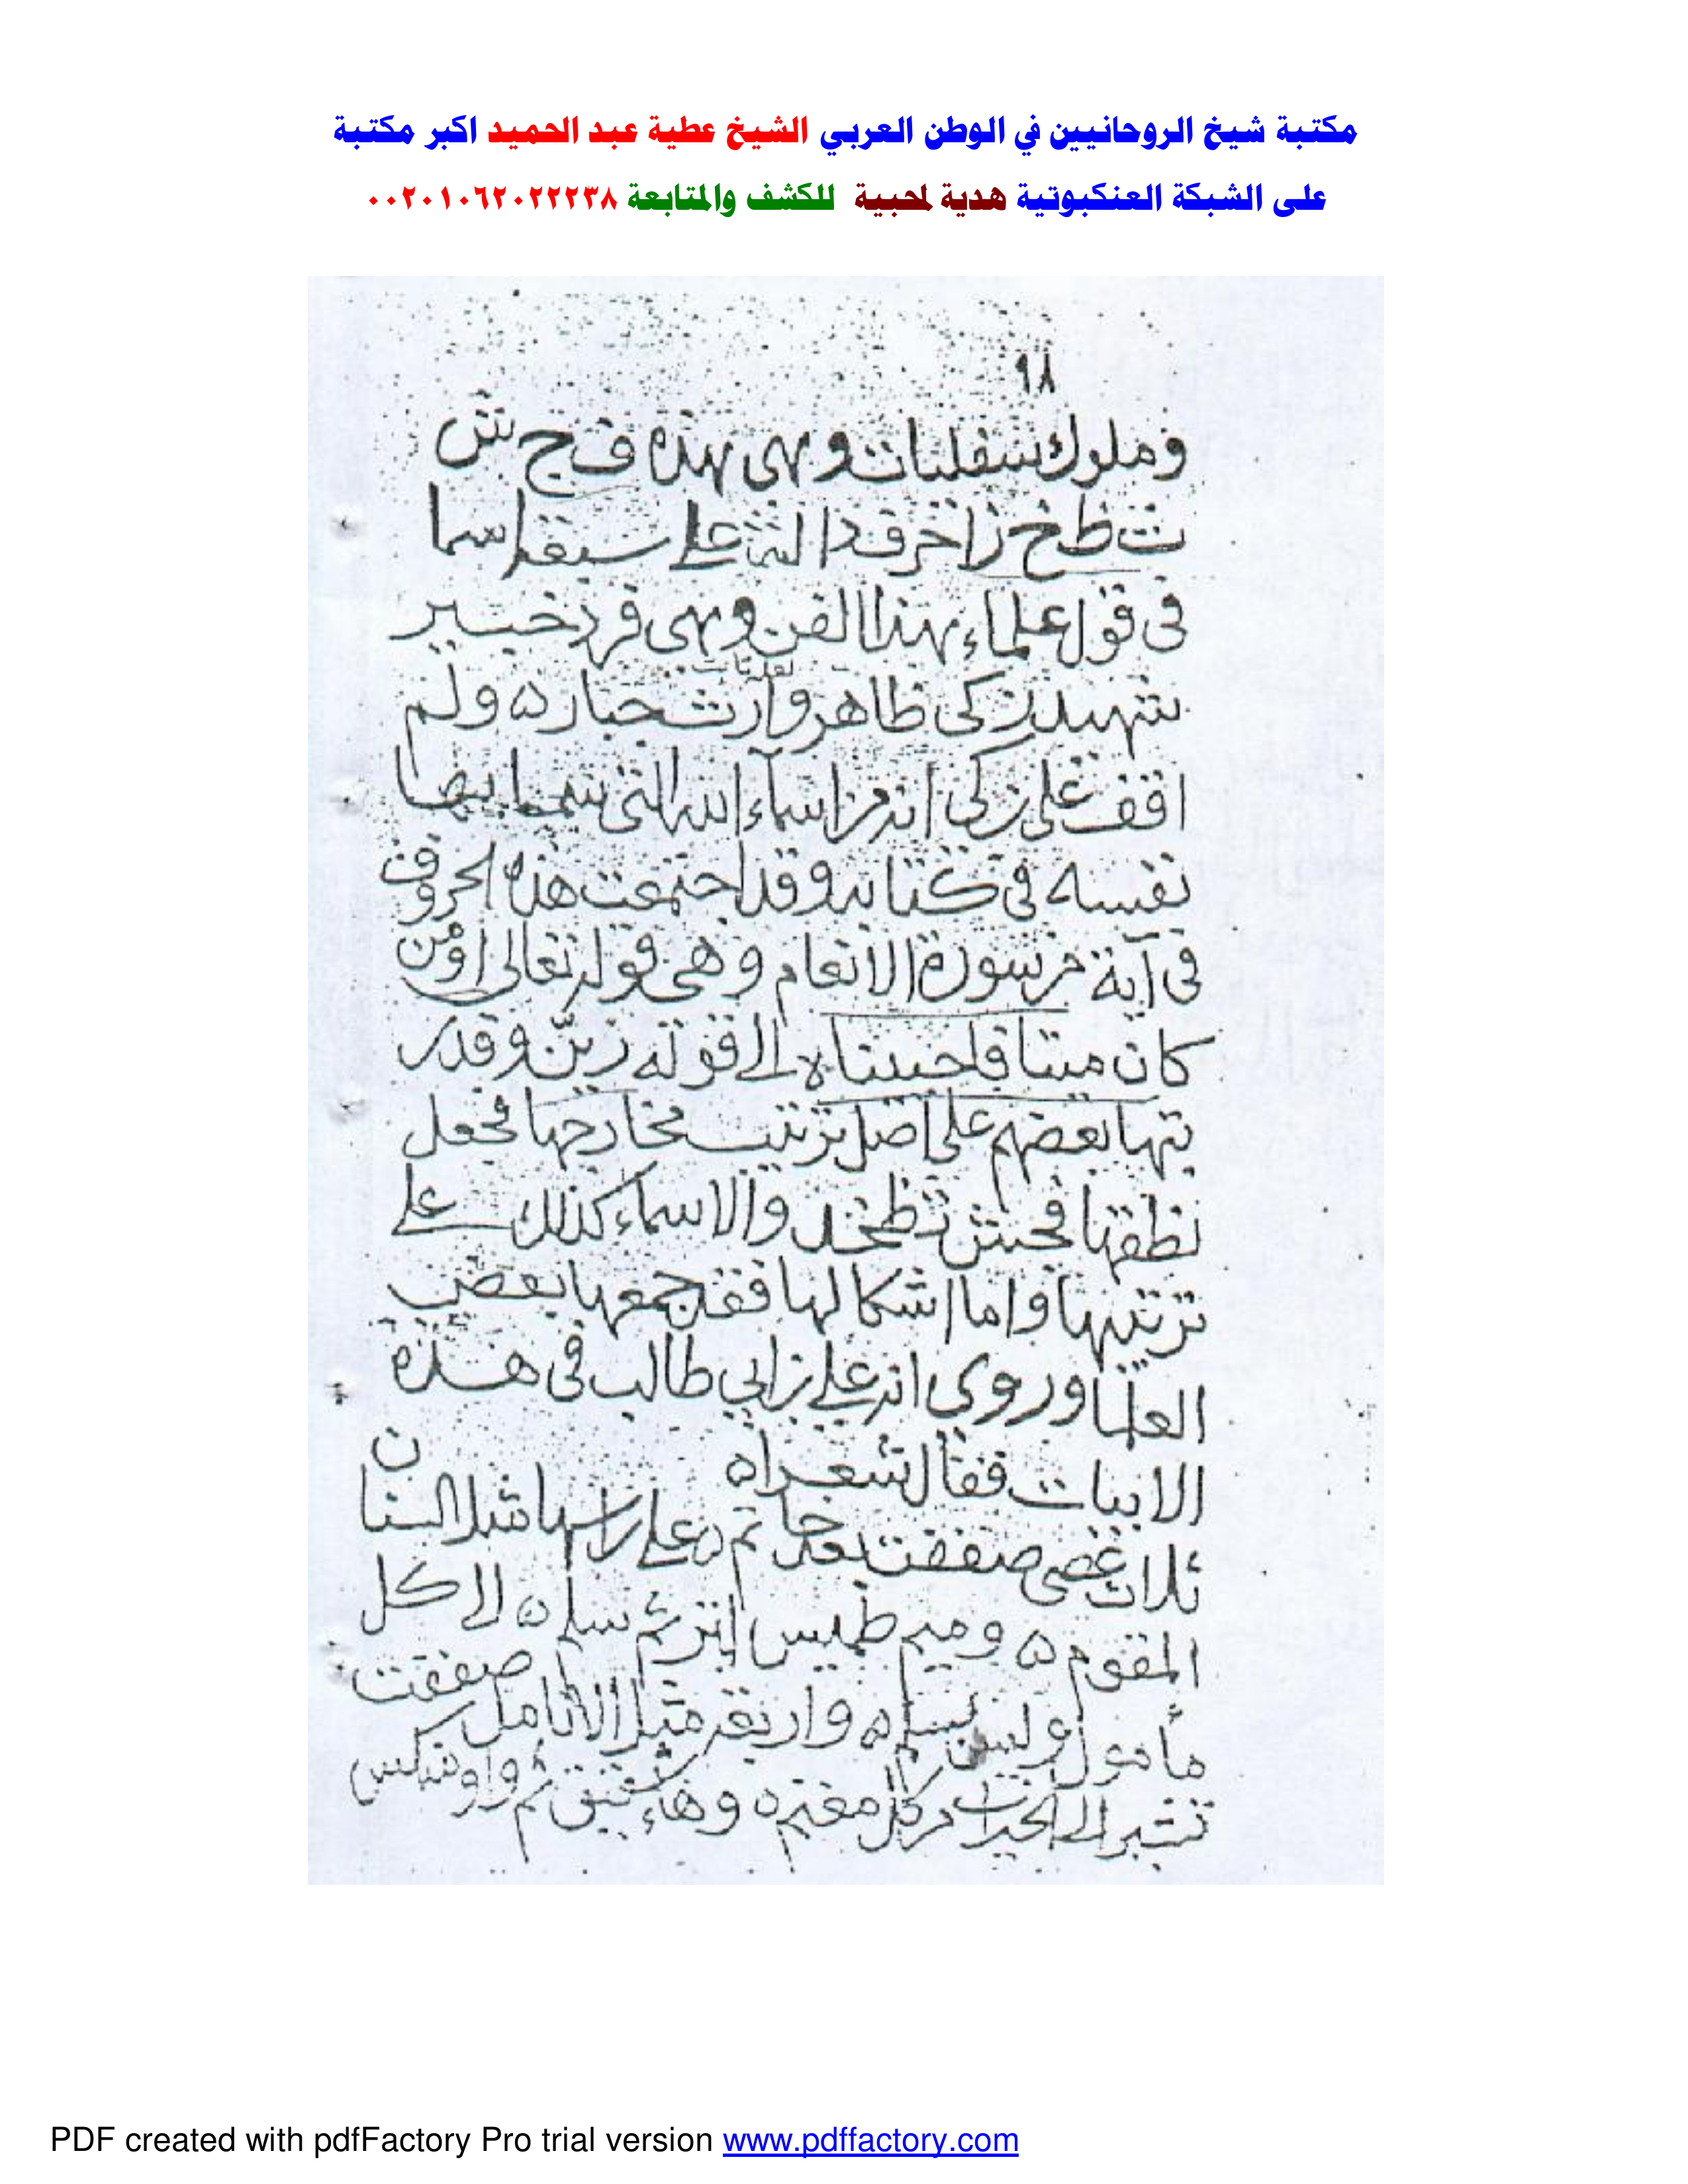 مكتبة شيخ الروحانيين في الوطن العربي الشيخ عطية عبد الحميد اكبر مكتبة
على الشبكة العنكبوتية هدية لمحبية للكشف والمتابعة ٠٠٢٠١٠٦٢٠٢٢٢٣٨
٩٨
وملوك سفليات وهى هذه ف ج ش
ث ظ خ ز
فى قول علماء هذا الفن وهى فرد خبير
زكى ظاهر وارث جبار ه ولم
اقف على زكى انه من اسماء الله التى بها
نفسه فى كتابه وقد اجتمعت هذه الحروف
فى آية من سورة الانعام وهى قوله تعالى اومن
كان ميتا فاحييناه الى قوله زين وقد ر
تبها بعضهم على اصل ترتيب مخارجها فجعل
نطقها والاسماء كذلك على
ترتيبها واما اشكالها فقد جمعها بعض
العلما وروى ابى طالب فى هذه
الابيات فقال شعراه
ثلاث عصى صففت بعد خاتم ه على راسها مثل السنان
المقوم ه وميم طميس ابتر ثم سلم ه الى كل
مأمول وليس بسلم ه واربعة مثل الانامل صففت
تشير الى الخيرات من كل مغنم ه وهاء شقيق ثم واو منكس
PDF created with pdfFactory Pro trial version www.pdffactory.com